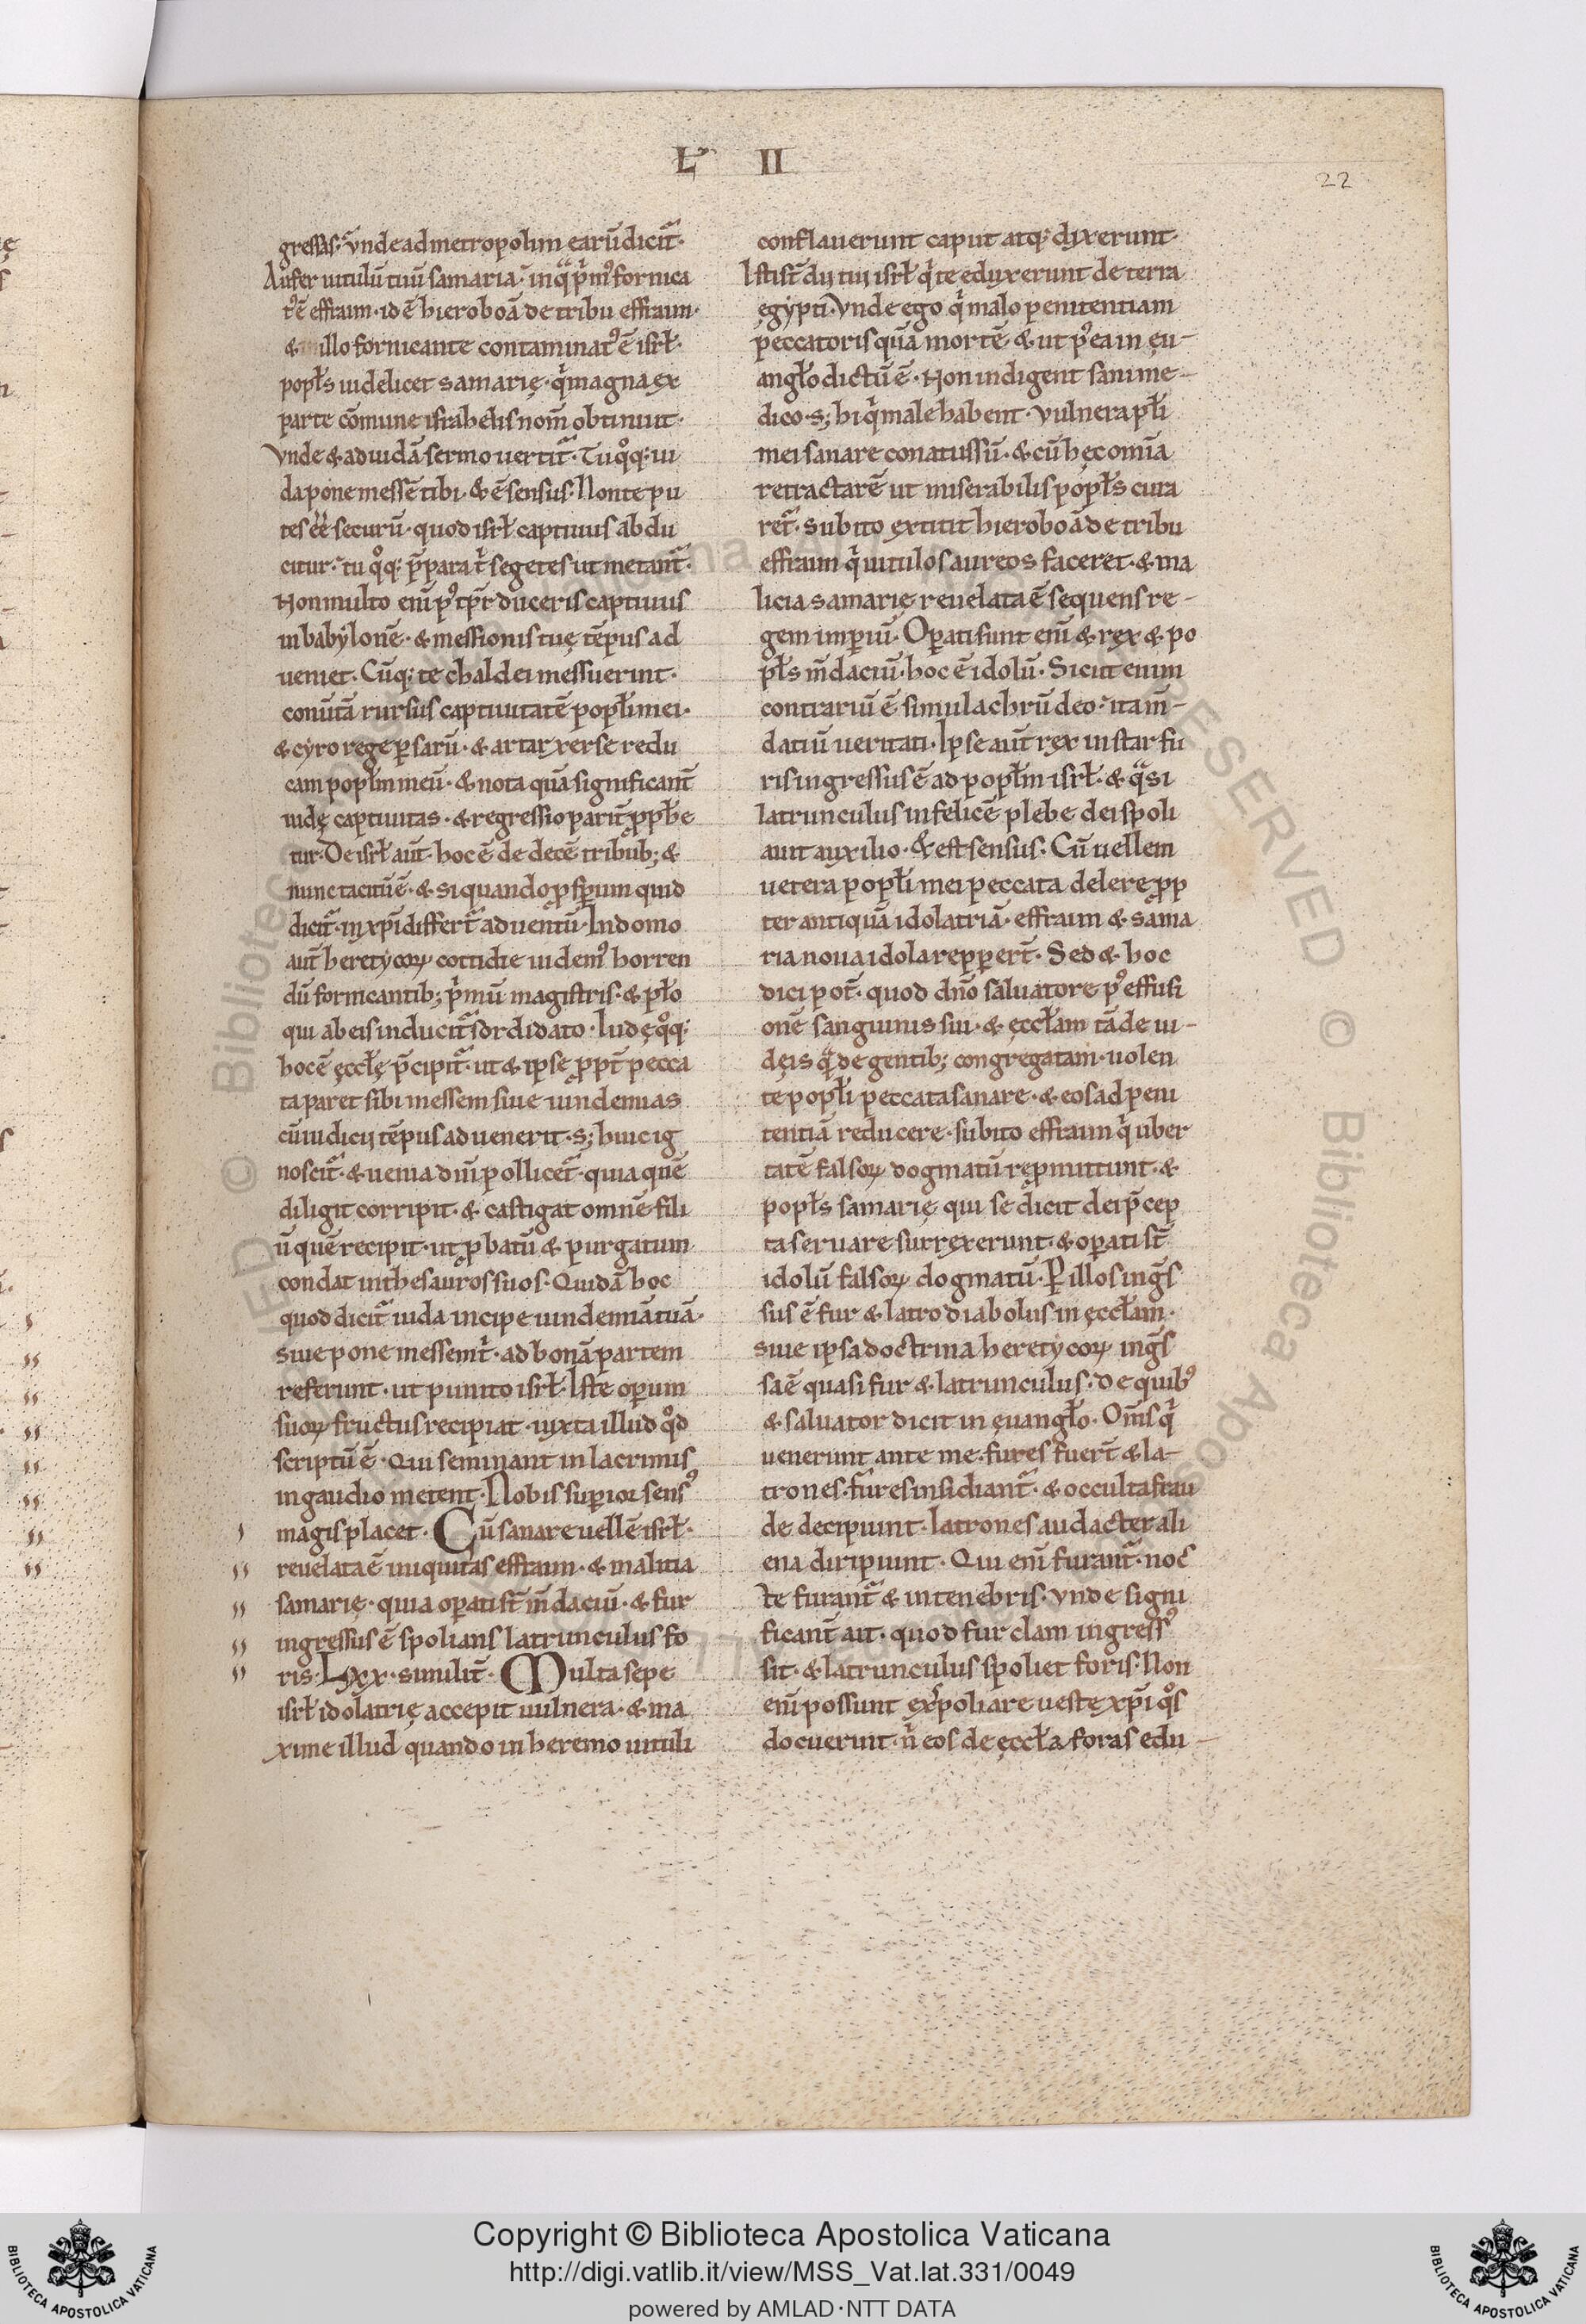 Ł II
22
gressas. vnde ad metropolim earũ dicit᷑.
Aufer uitulũ tuũ samaria. in q̃ p̃mꝰ fornica
tꝰ ẽ effraim. id ẽ hieroboã de tribu effraim.
& illo fornicante contaminatꝰ ẽ isrł.
popłs uidelicet samarię. q̇ magna ex
parte cõmune israhelis nom̃ obtinuit.
Vnde & ad iudã sermo uertit᷑. Tu qͦq; iu
da pone messẽ tibi. & ẽ sensus. Non te pu
tes ẽe securũ. quod isrł captiuus abdu
citur. tu qͦq; p̃para t̉ segetes ut metant᷑.
Non multo eni᷑ pꝰ tp̃r duceris captiuus
in babylonẽ. & messionis tuę tẽpus ad
ueniet. Cũq; te chaldei messuerint.
conũtã rursus captiuitatẽ popłi mei.
& cyro rege ꝑsarũ. & artarxerse redu
cam popłm meũ. & nota quã significant᷑
iudę captiuitas. & regressio parit᷑ ꝓphe
tur. De isrł aut̃. hoc ẽ de decẽ tribub; &
nunc tacitũ ẽ. & si quando ꝓsꝑum quid
dicit᷑. in xp̃i differt᷑ aduentũ. In domo
aut̃ heretycoꝝ cottidie uidemꝰ horren
dũ fornicantib; p̉mũ magistris. & pło
qui ab eis inducit᷑ sordidato. Iudę qͦq;
hoc ẽ ęccłę p̃cipit᷑. ut & ipse ꝓpt̃ pecca
ta paret sibi messem siue uindemias
cũ iudicij tẽpus aduenerit. s; huic ig
noscit᷑. & uenia dñi pollicet᷑. quia quẽ
diligit corripit. & castigat omnẽ fili
ũ quẽ recipit. ut ꝓbatũ & purgatum
condat in thesauros suos. Quidã hoc
quod dicit᷑ iuda incipe uindemiã tuã.
siue pone messem t̉. ad bonã partem
referunt. ut punito isrł. Iste oꝑum
suoꝝ fructus recipiat. iuxta illud qͦd
scriptũ ẽ. Qui seminant in lacrimis
in gaudio metent. Nobis suꝑior sensꝰ
magis placet. Cũ sanare uellẽ isrł.
reuelata ẽ iniquitas effraim. & malitia
samarię. quia oꝑati st̃ m̃daciũ. & fur
ingressus ẽ spolians latrunculus fo
ris. Lxx. similit̃. Multa sepe
isrł idolatrię accepit uulnera. & ma
xime illud quando in heremo uituli
conflauerunt caput atq; dixerunt.
Isti st̃ dij tui isrł q̉ te eduxerunt de terra
ęgypti. Vnde ego q̉ malo penitentiam
peccatoris quã mortẽ & ut pꝰea in eu-
angło dictũ ẽ. Non indigent sani me-
dico. s; hi q̉ male habent. Vulnera płi
mei sanare conatus sũ. & cũ hęc omĩa
retractarẽ ut miserabilis popłs cura
ret᷑. subito extitit hieroboã de tribu
effraim q̉ uitulos aureos faceret. & ma
licia samarię reuelata ẽ sequens re-
gem imꝑiũ. Oꝑati sunt eni᷑ & rex & po
płs m̃daciũ. hoc ẽ idolũ. Sicut enim
contrariũ ẽ simulachrũ deo. ita m̃-
datiũ ueritati. Ipse aut̃ rex instar fu
ris ingressus ẽ ad popłm isrł. & q̃si
latrunculus infelicẽ plebẽ dei spoli
auit auxilio. & est sensus. Cũ uellem
uetera popłi mei peccata delere ꝓp
ter antiquã idolatriã. effraim & sama
ria noua idola repꝑert̃. Sed & hoc
dici pot̃. quod dño saluatore pꝰ effusi
onẽ sanguinis sui. & ęccłam tã de iu-
dęis q̃ de gentib; congregatam. uolen
te popłi peccata sanare. & eos ad peni
tentiã reducere. subito effraim q̉ uber
tatẽ falsoꝝ dogmatũ reꝓmittunt. &
popłs samarię qui se dicit dei p̃cep
ta seruare surrexerunt. & oꝑati st̃
idolũ falsoꝝ dogmatũ. Ꝑ illos ing̃s
sus ẽ fur & latro diabolus in ęccłam.
siue ipsa doctrina heretycoꝝ ing̃s
sa ẽ quasi fur & latrunculus. de quibꝰ
& saluator dicit in ęuangło. Om̃s q̉
uenerunt ante me. fures fuert̃ & la-
trones. fures insidiant᷑. & occulta frau
de decipiunt. latrones audacter ali
ena diripiunt. Qui eni᷑ furant᷑. noc
te furant᷑ & in tenebris. vnde signi
ficant᷑ ait. quod fur clam ingressꝰ
sit. & latrunculus spoliet foris. Non
eni᷑ possunt exspoliare ueste xp̃i qͦs
docuerint. ñ eos de ęccła foras edu-
Copyright © Biblioteca Apostolica Vaticana
http://digi.vatlib.it/view/MSS_Vat.lat.331/0049
powered by AMLAD·NTT DATA
BIBLIOTECA APOSTOLICA VATICANA
BIBLIOTECA APOSTOLICA VATICANA